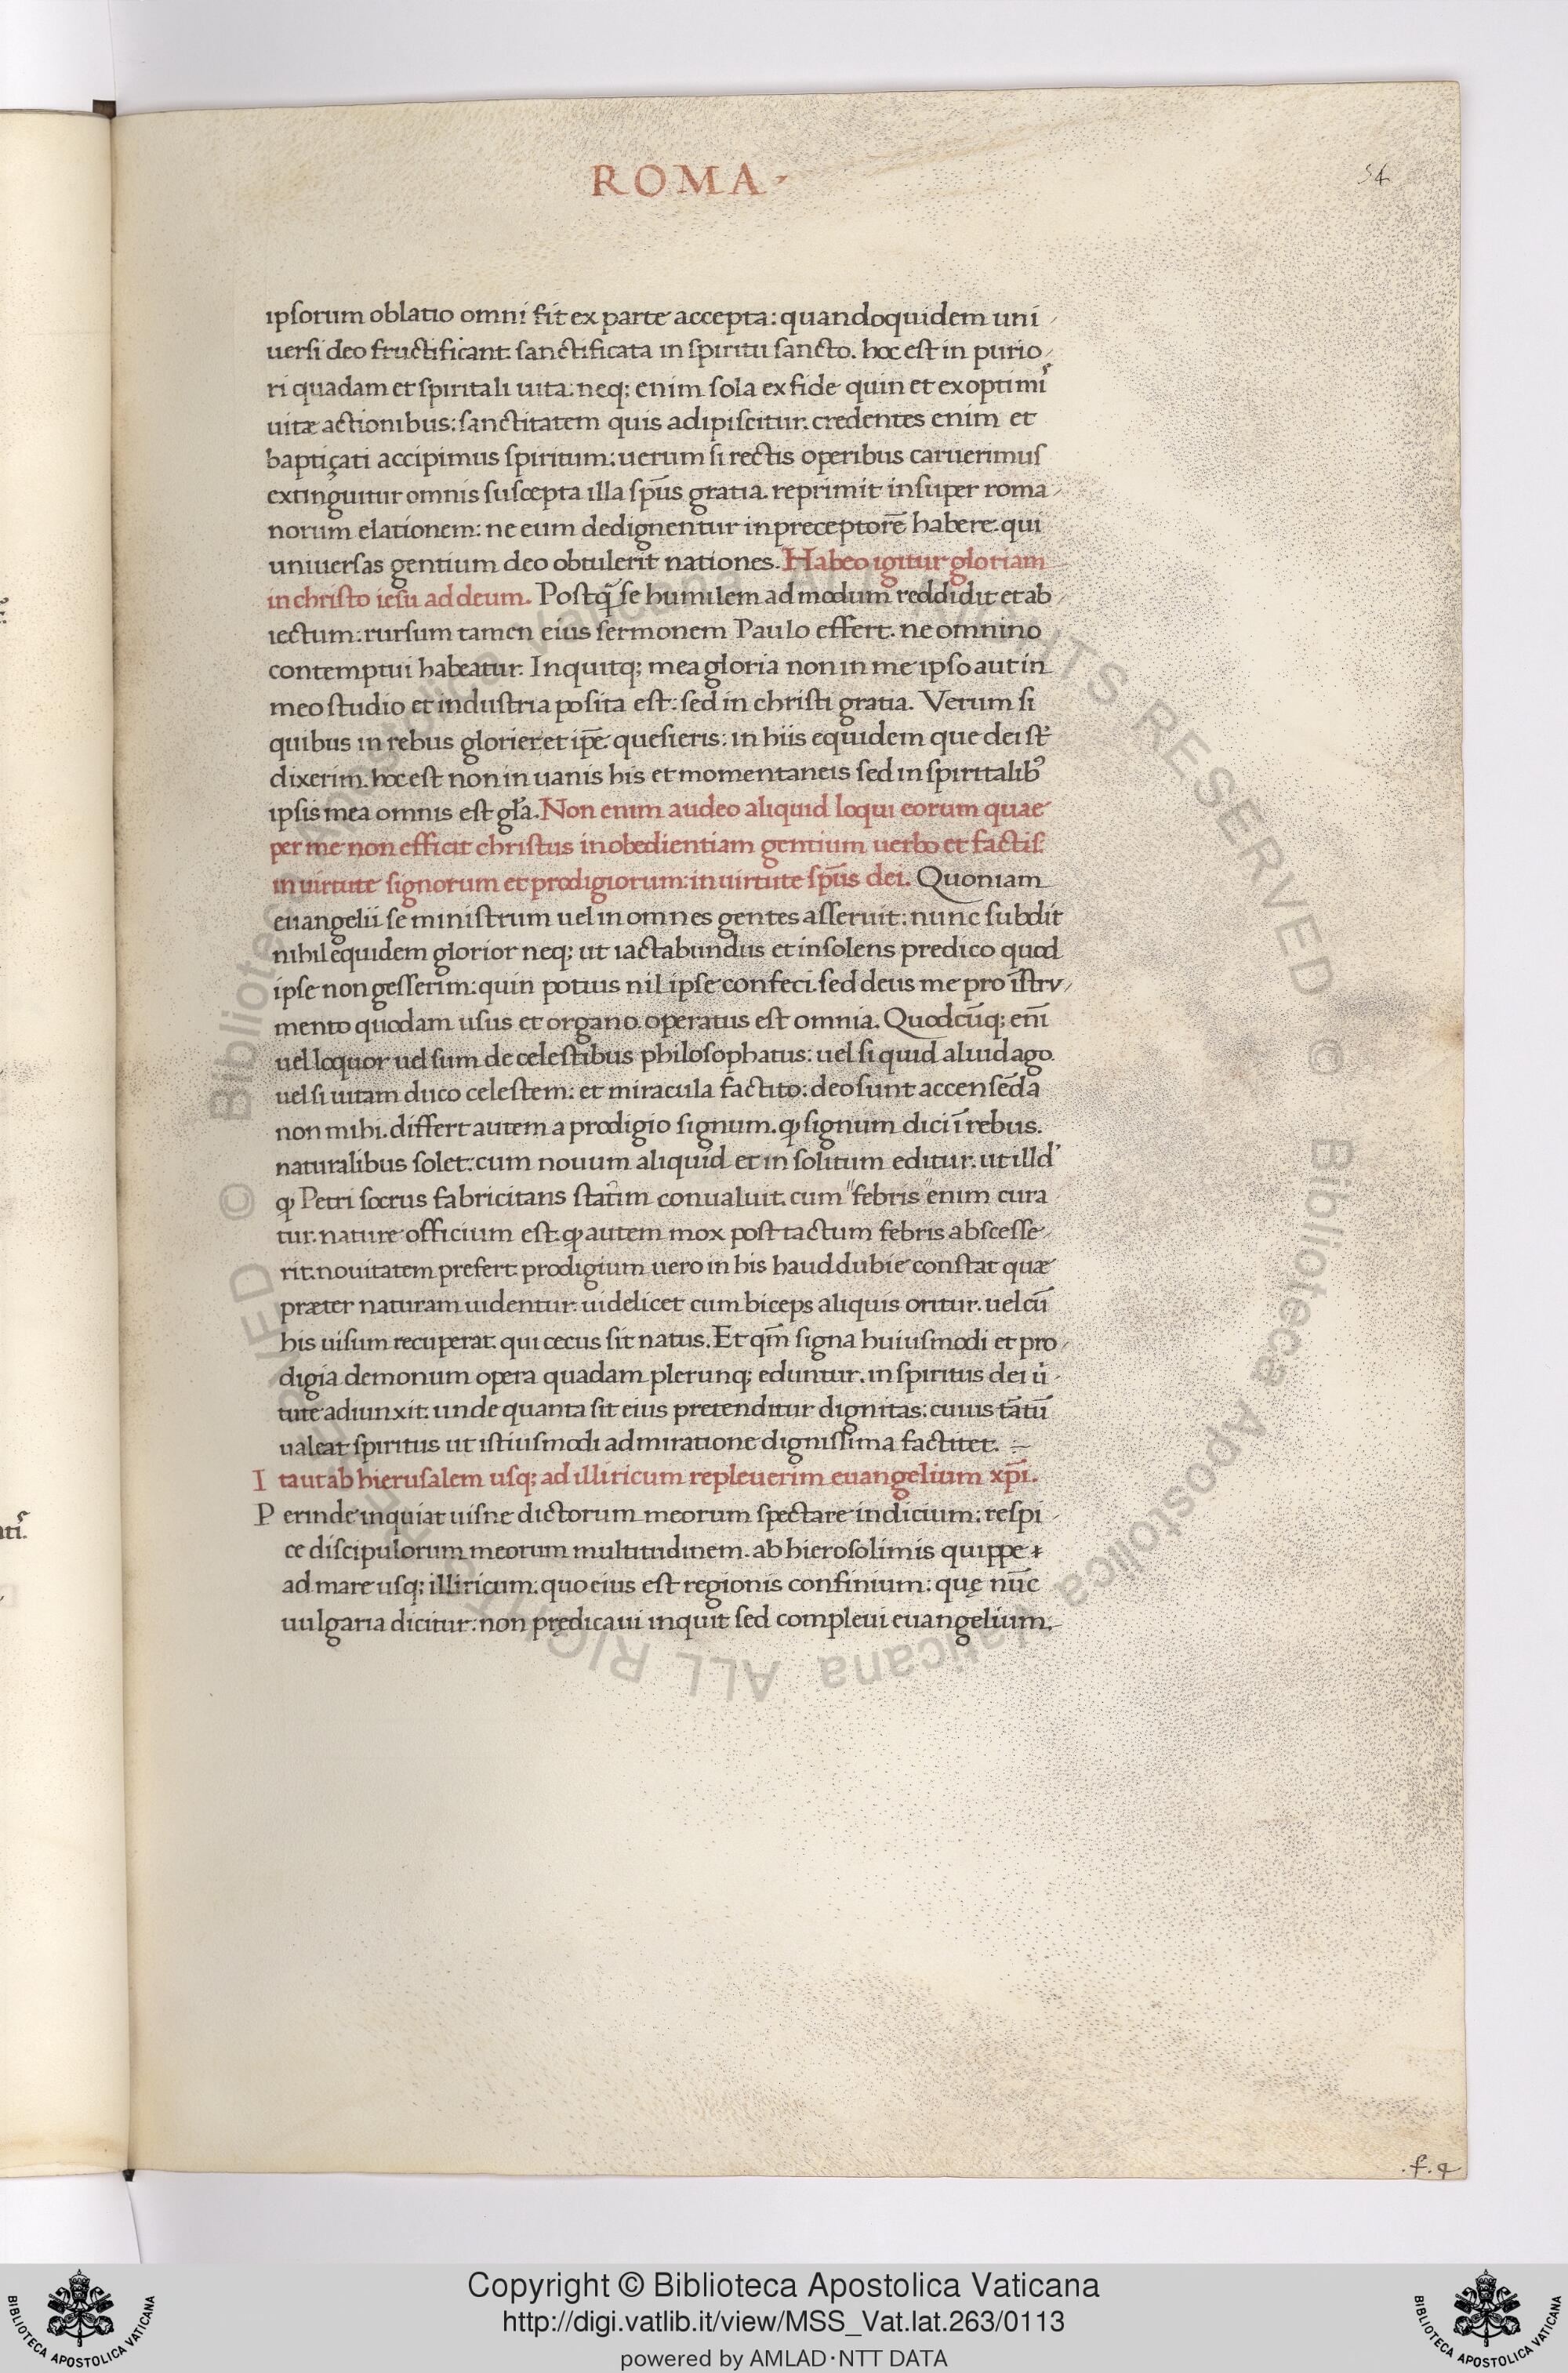 ROMA
54
ipsorum oblatio omni fit ex parte accepta: quandoquidem uni
uersi deo fructificant. sanctificata in spiritu sancto. hoc est in purio
ri quadam et spiritali uita. neq; enim sola ex fide quin et ex optimis
uitæ actionibus: sanctitatem quis adipiscitur. credentes enim et
baptiçati accipimus spiritum: uerum si rectis operibus caruerimus
extinguitur omnis suscepta illa sp̄us gratia. reprimit insuper roma
norum elationem: ne eum dedignentur in preceptorē habere. qui
uniuersas gentium deo obtulerit nationes. Habeo igitur gloriam
in christo iesu ad deum. Postq̄ se humilem ad modum reddidit et ab
iectum: rursum tamen eius sermonem Paulo effert. ne omnino
contemptui habeatur. Inquitq; mea gloria non in me ipso aut in
meo studio et industria posita est: sed in christi gratia. Verum si
quibus in rebus glorier et ip̄e quesieris: in hiis equidem que dei st̄
dixerim. hoc est non in uanis his et momentaneis sed in spiritalib3
ipsis mea omnis est gl̄a. Non enim audeo aliquid loqui eorum quae
per me non efficit christus in obedientiam gentium uerbo et factis:
in uirtute signorum et prodigiorum: in uirtute sp̄us dei. Quoniam
euangelii se ministrum uel in omnes gentes asseruit: nunc subdit
nihil equidem glorior neq; ut iactabundus et insolens predico quod
ipse non gesserim: quin potius nil ipse confeci. sed deus me pro īstru
mento quodam usus et organo operatus est omnia. Quodcūq; enī
uel loquor uel sum de celestibus philosophatus: uel si quid aliud ago
uel si uitam duco celestem: et miracula factito: deo sunt accensēda
non mihi. differt autem a prodigio signum. ꝙ signum dici ī rebus.
naturalibus solet: cum nouum aliquid et in solitum editur. ut illd'
ꝙ Petri socrus fabricitans statim conualuit. cum "febris" enim cura
tur. nature officium est. ꝙ autem mox post tactum febris abscesse
rit. nouitatem prefert. prodigium uero in his haud dubie constat quæ
præter naturam uidentur. uidelicet cum biceps aliquis oritur. uel cū
his uisum recuperat. qui cecus sit natus. Et qm̄ signa huiusmodi et pro
digia demonum opera quadam plerunq; eduntur. in spiritus dei ui
tute adiunxit. unde quanta sit eius pretenditur dignitas: cuius tātū
ualeat spiritus ut istiusmodi admiratione dignissima factitet.
Ita ut ab hierusalem usq; ad illiricum repleuerim euangelium xp̄i.
Perinde inquiat uisne dictorum meorum spectare indicium: respi
ce discipulorum meorum multitudinem. ab hierosolimis quippe
ad mare usq; illiricum. quo eius est regionis confinium: quę nūc
uulgaria dicitur: non prędicaui inquit sed compleui euangelium.
.f.4
Copyright © Biblioteca Apostolica Vaticana
http://digi.vatlib.it/view/MSS_Vat.lat.263/0113
powered by AMLAD·NTT DATA
BIBLIOTECA APOSTOLICA VATICANA
BIBLIOTECA APOSTOLICA VATICANA
© Biblioteca Apostolica Vaticana ALL RIGHTS RESERVED © Biblioteca Apostolica Vaticana ALL RIGHTS RESERVED